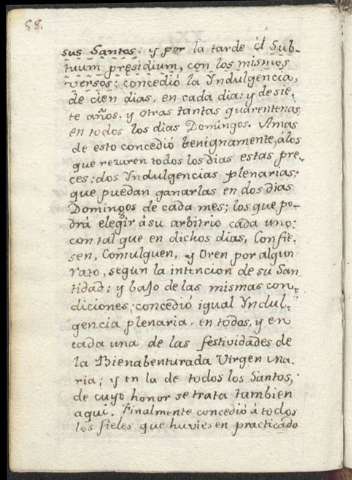 58.
sus Santos. y por la tarde el Sub-
tuum presidium, con los mismos
versos; concedió la Yndulgencia,
de cien dias, en cada dia; y de sie-
te años, y otras tantas quarentenas
en todos los dias Domingos. Amas
de esto concedió benignamente, álos
que rezaren todos los dias estas pre-
ces; dos Yndulgencias plenarias;
que puedan ganarlas en dos dias
Domingos de cada mes; los que po-
drá elegir ásu arbitrio cada uno;
con tal que en dichos dias, Confie-
sen, Comulguen, y Oren por algun
rato, según la intencion de su San-
tidad; y bajo de las mismas con-
diciones, concedió igual Yndul-
gencia plenaria, en todas, y en
cada una de las festividades de
la Bienabenturada Virgen Ma-
ria; y en la de todos los Santos,
de cuyo honor se trata tambien
aqui. Finalmente concedió á todos
los fieles que huvies en practicado